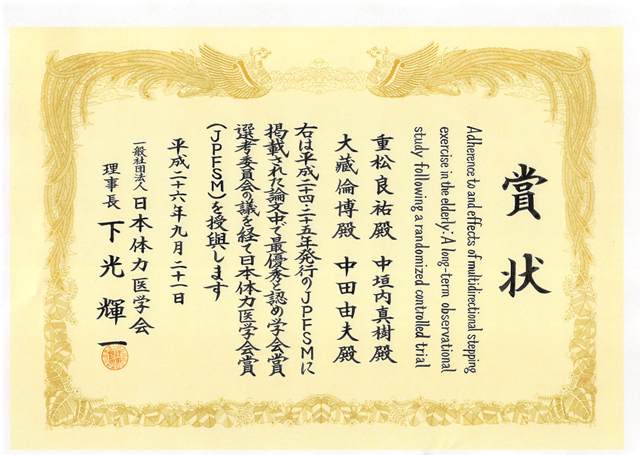 賞状
Adherence to and effects of multidirectional stepping
exercise in the elderly: A long-term observational
study following a randomized controlled trial
重松良祐殿 中垣内真樹殿
大藏倫博殿 中田由夫殿
右は平成二十四・二十五年発行のJPFSMに
掲載された論文中で最優秀と認め学会賞
選考委員会の議を経て日本体力医学会賞
(JPFSM)を授與します
平成二十六年九月二十一日
一般社団法人 日本体力医学会
理事長 下光輝一